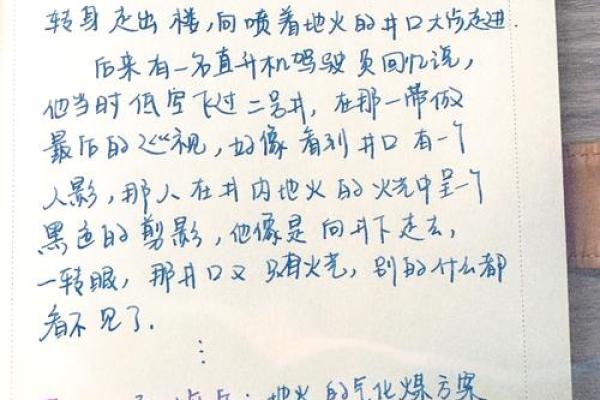 转身走出楼,向喷着地火的井口大步走进.
后来有一名直升机驾驶员回忆说,
他当时低空飞过二号井,在那一带做
最后的巡视,好像看到井口有一个
人影,那人在井内地火的火光中呈一个
黑色的剪影,他像是向井下走去,
一转眼,那井口又只有火光,别的什么都
看不见了.
⋮
地火的气化煤方案